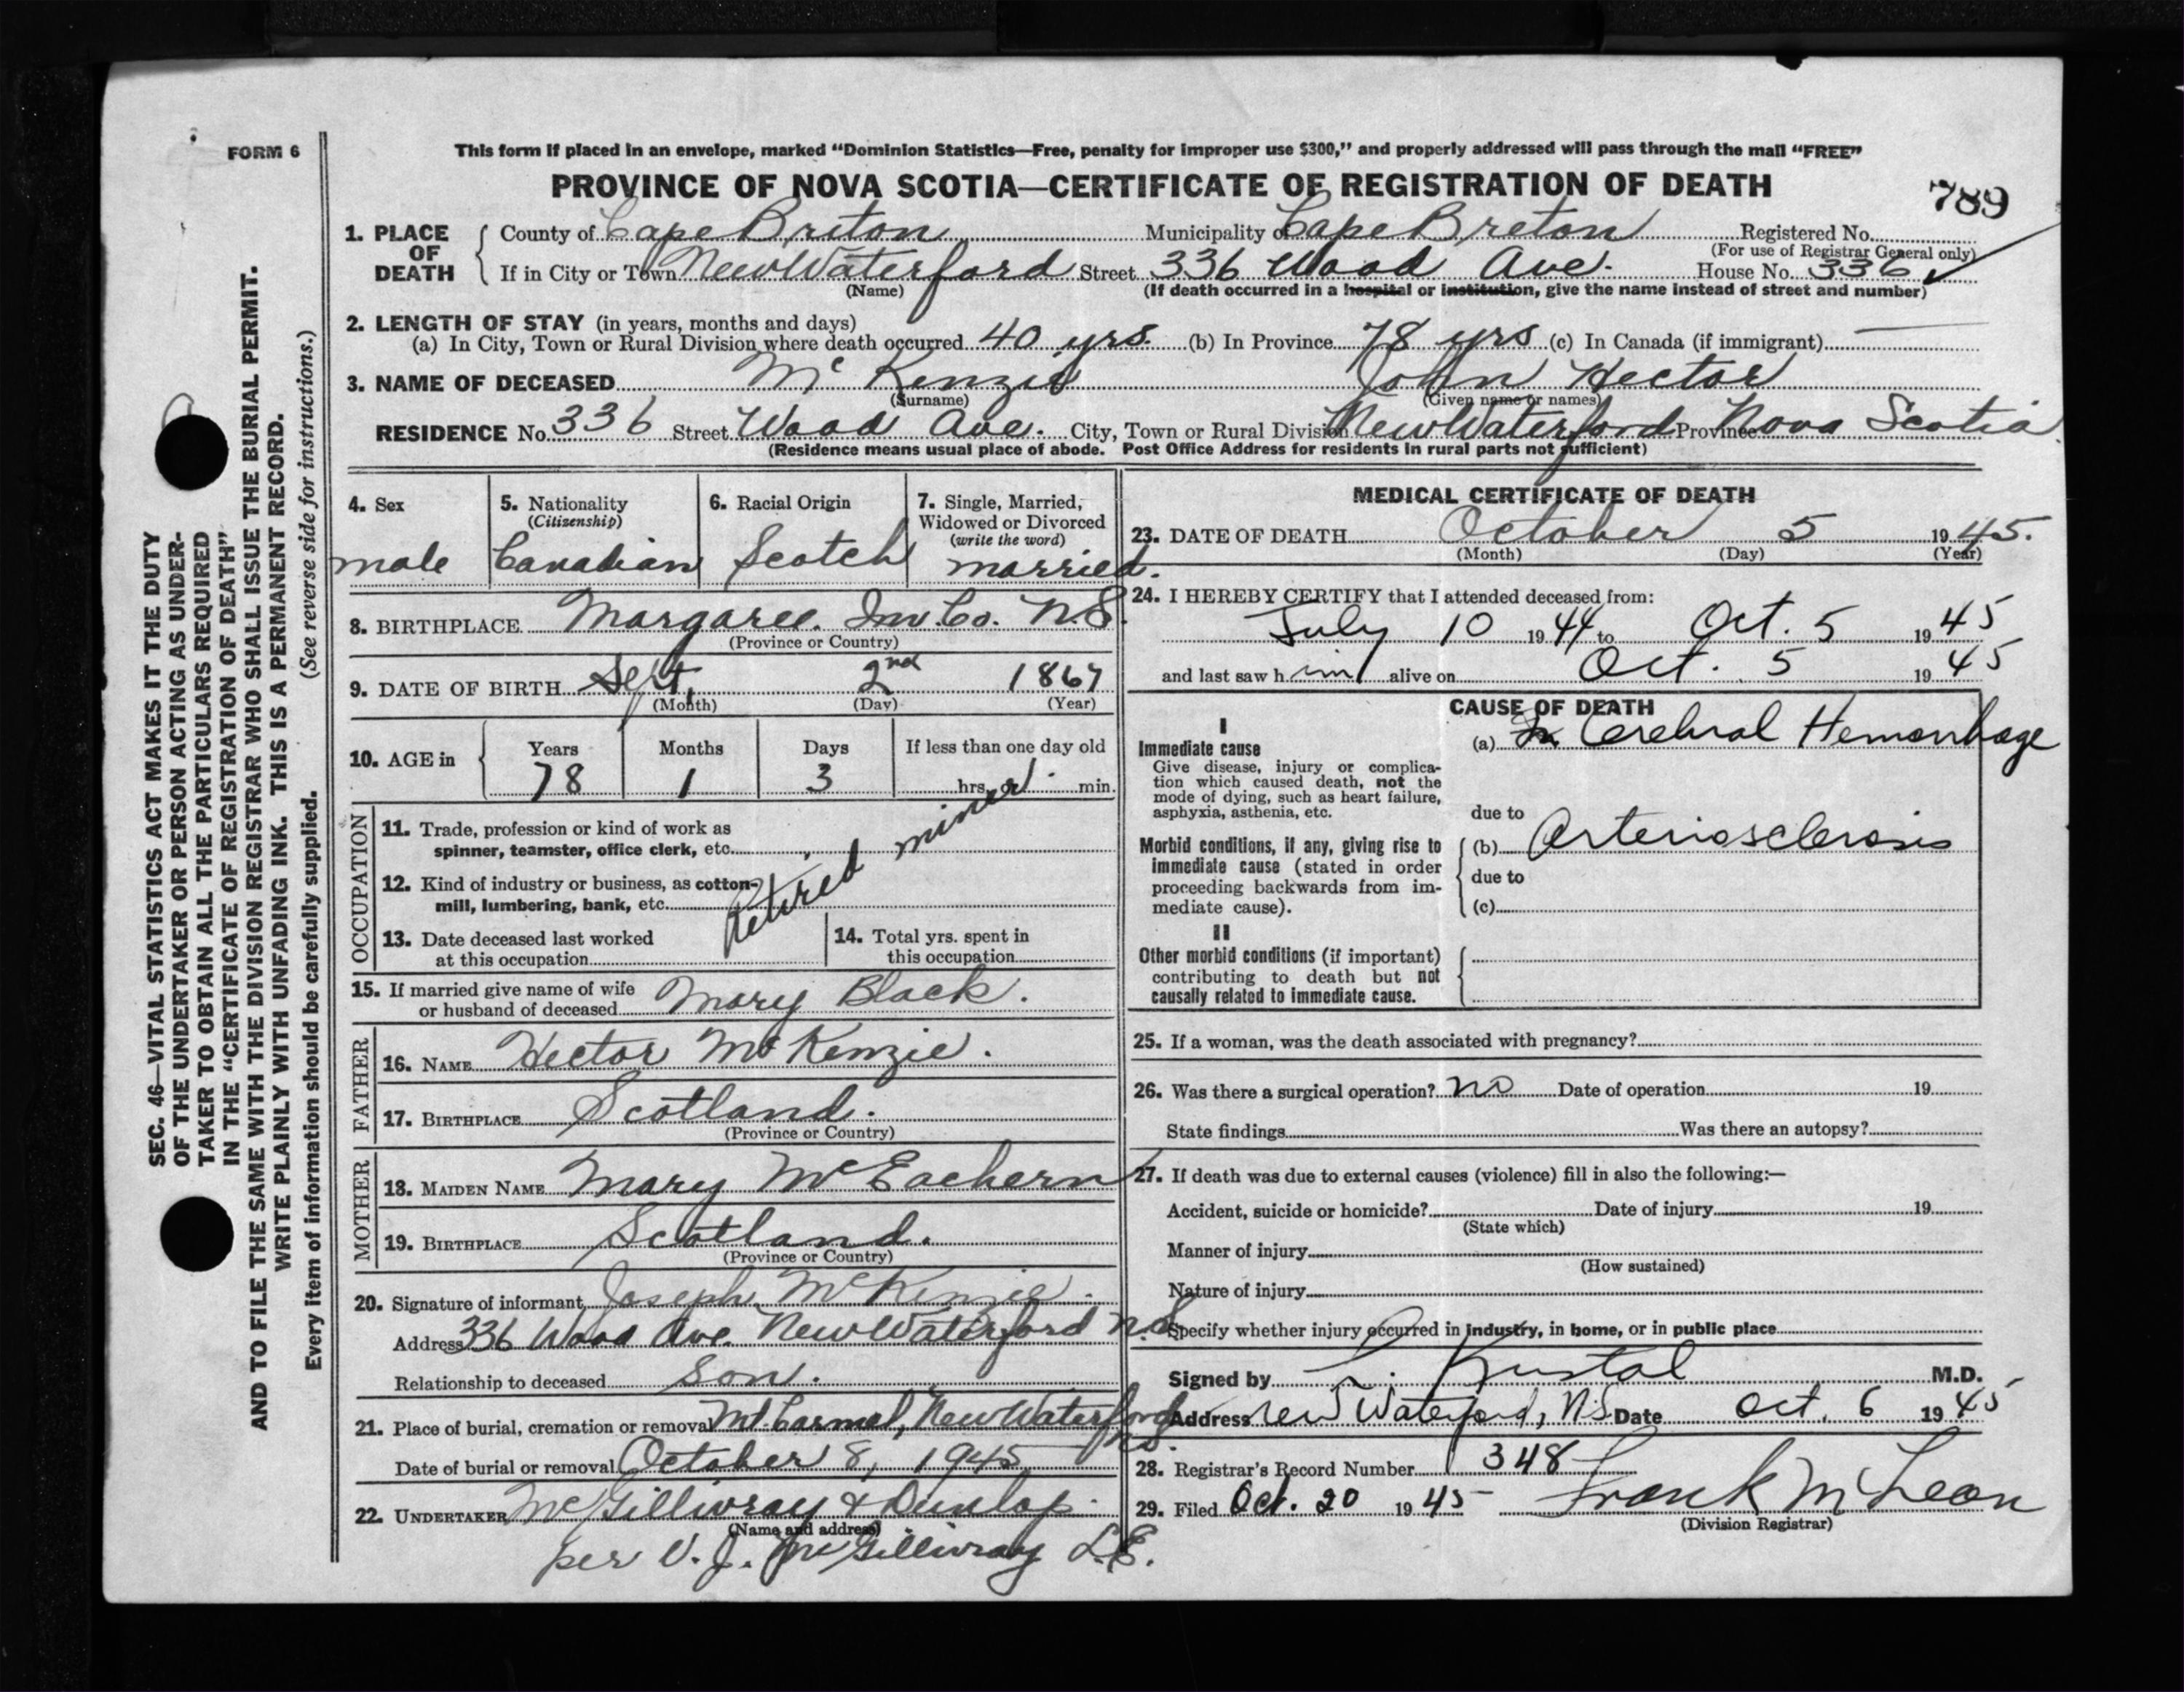 FORM 6
This form if placed in an envelope, marked “Dominion Statistics—Free, penalty for improper use $300,” and properly addressed will pass through the mail “FREE”
PROVINCE OF NOVA SCOTIA—CERTIFICATE OF REGISTRATION OF DEATH
789
1. PLACE OF DEATH
County of Cape Briton Municipality of Cape Breton Registered No.
(For use of Registrar General only)
If in City or Town New Waterford Street 336 Wood Ave. House No. 336
(Name) (If death occurred in a hospital or institution, give the name instead of street and number)
2. LENGTH OF STAY (in years, months and days)
(a) In City, Town or Rural Division where death occurred 40 yrs. (b) In Province 78 yrs (c) In Canada (if immigrant) —
3. NAME OF DECEASED McKenzie John Hector
(Surname) (Given name or names)
RESIDENCE No. 336 Street Wood Ave. City, Town or Rural Division New Waterford Province Nova Scotia
(Residence means usual place of abode. Post Office Address for residents in rural parts not sufficient)
4. Sex
male
5. Nationality
(Citizenship)
Canadian
6. Racial Origin
Scotch
7. Single, Married,
Widowed or Divorced
(write the word)
married.
8. BIRTHPLACE Margaree. Inv. Co. N.S.
(Province or Country)
9. DATE OF BIRTH Sept, 2nd 1867
(Month) (Day) (Year)
10. AGE in
Years Months Days If less than one day old
78 1 3 hrs. or min.
OCCUPATION
11. Trade, profession or kind of work as
spinner, teamster, office clerk, etc.
12. Kind of industry or business, as cotton-
mill, lumbering, bank, etc.
Retired miner
13. Date deceased last worked
at this occupation
14. Total yrs. spent in
this occupation
15. If married give name of wife
or husband of deceased Mary Black.
FATHER
16. NAME Hector McKenzie.
17. BIRTHPLACE Scotland.
(Province or Country)
MOTHER
18. MAIDEN NAME Mary McEachern
19. BIRTHPLACE Scotland.
(Province or Country)
20. Signature of informant Joseph McKenzie.
Address 336 Wood Ave. New Waterford N.S.
Relationship to deceased Son.
21. Place of burial, cremation or removal Mt. Carmel, New Waterford N.S.
Date of burial or removal October 8, 1945
22. UNDERTAKER McGillivray & Dunlop.
(Name and address)
per V. J. McGillivray L.E.
MEDICAL CERTIFICATE OF DEATH
23. DATE OF DEATH October 5 1945.
(Month) (Day) (Year)
24. I HEREBY CERTIFY that I attended deceased from:
July 10 1944 to Oct. 5 1945
and last saw him alive on Oct. 5 1945
CAUSE OF DEATH
I
Immediate cause
Give disease, injury or complica-
tion which caused death, not the
mode of dying, such as heart failure,
asphyxia, asthenia, etc.
(a) Cerebral Hemorrhage
due to
Morbid conditions, if any, giving rise to
immediate cause (stated in order
proceeding backwards from im-
mediate cause).
(b) Arteriosclerosis
due to
(c)
II
Other morbid conditions (if important)
contributing to death but not
causally related to immediate cause.
25. If a woman, was the death associated with pregnancy?
26. Was there a surgical operation? No Date of operation 19
State findings Was there an autopsy?
27. If death was due to external causes (violence) fill in also the following:—
Accident, suicide or homicide? Date of injury 19
(State which)
Manner of injury
(How sustained)
Nature of injury
Specify whether injury occurred in industry, in home, or in public place
Signed by Kristal M.D.
Address New Waterford, N.S. Date Oct. 6 1945
28. Registrar's Record Number 348
29. Filed Oct. 20 1945 Frank McLean
(Division Registrar)
SEC. 46—VITAL STATISTICS ACT MAKES IT THE DUTY
OF THE UNDERTAKER OR PERSON ACTING AS UNDER-
TAKER TO OBTAIN ALL THE PARTICULARS REQUIRED
IN THE “CERTIFICATE OF REGISTRATION OF DEATH”
AND TO FILE THE SAME WITH THE DIVISION REGISTRAR WHO SHALL ISSUE THE BURIAL PERMIT.
WRITE PLAINLY WITH UNFADING INK. THIS IS A PERMANENT RECORD.
Every item of information should be carefully supplied. (See reverse side for instructions.)